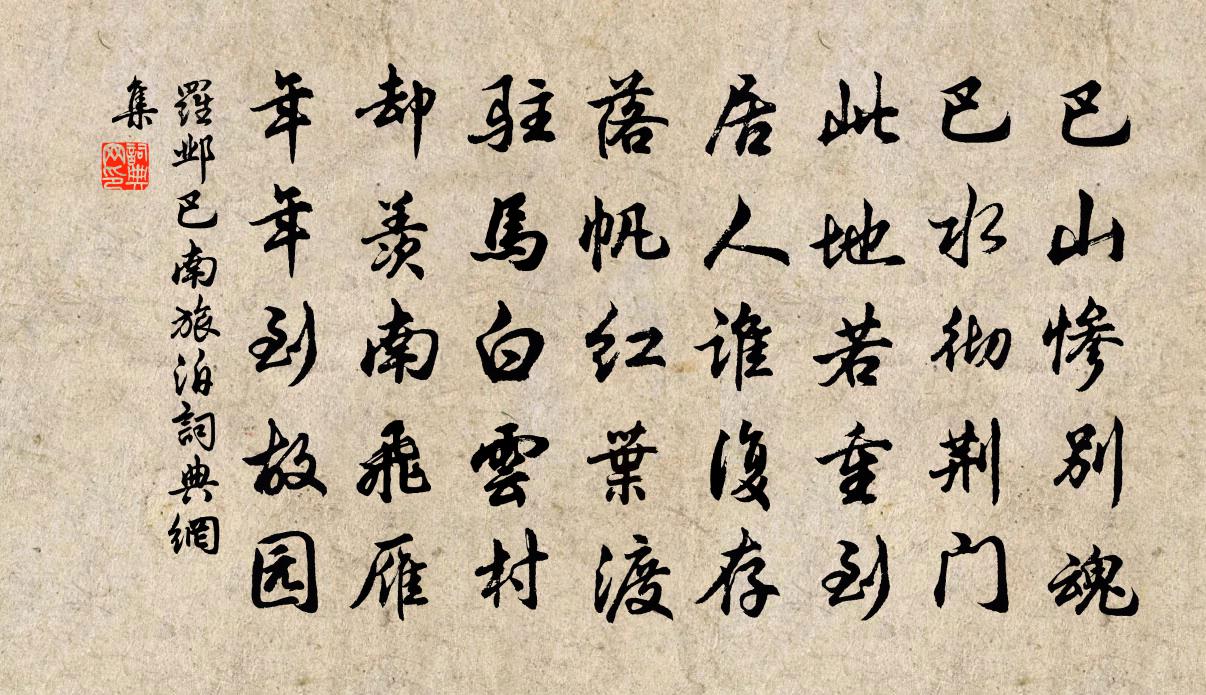 巴山惨别魂
巴水彻荆门
此地若重到
居人谁復存
落帆红葉渡
驻馬白雲村
却羡南飛雁
年年到故园
羅邺巴南旅泊詞典網
集
詞典
网印